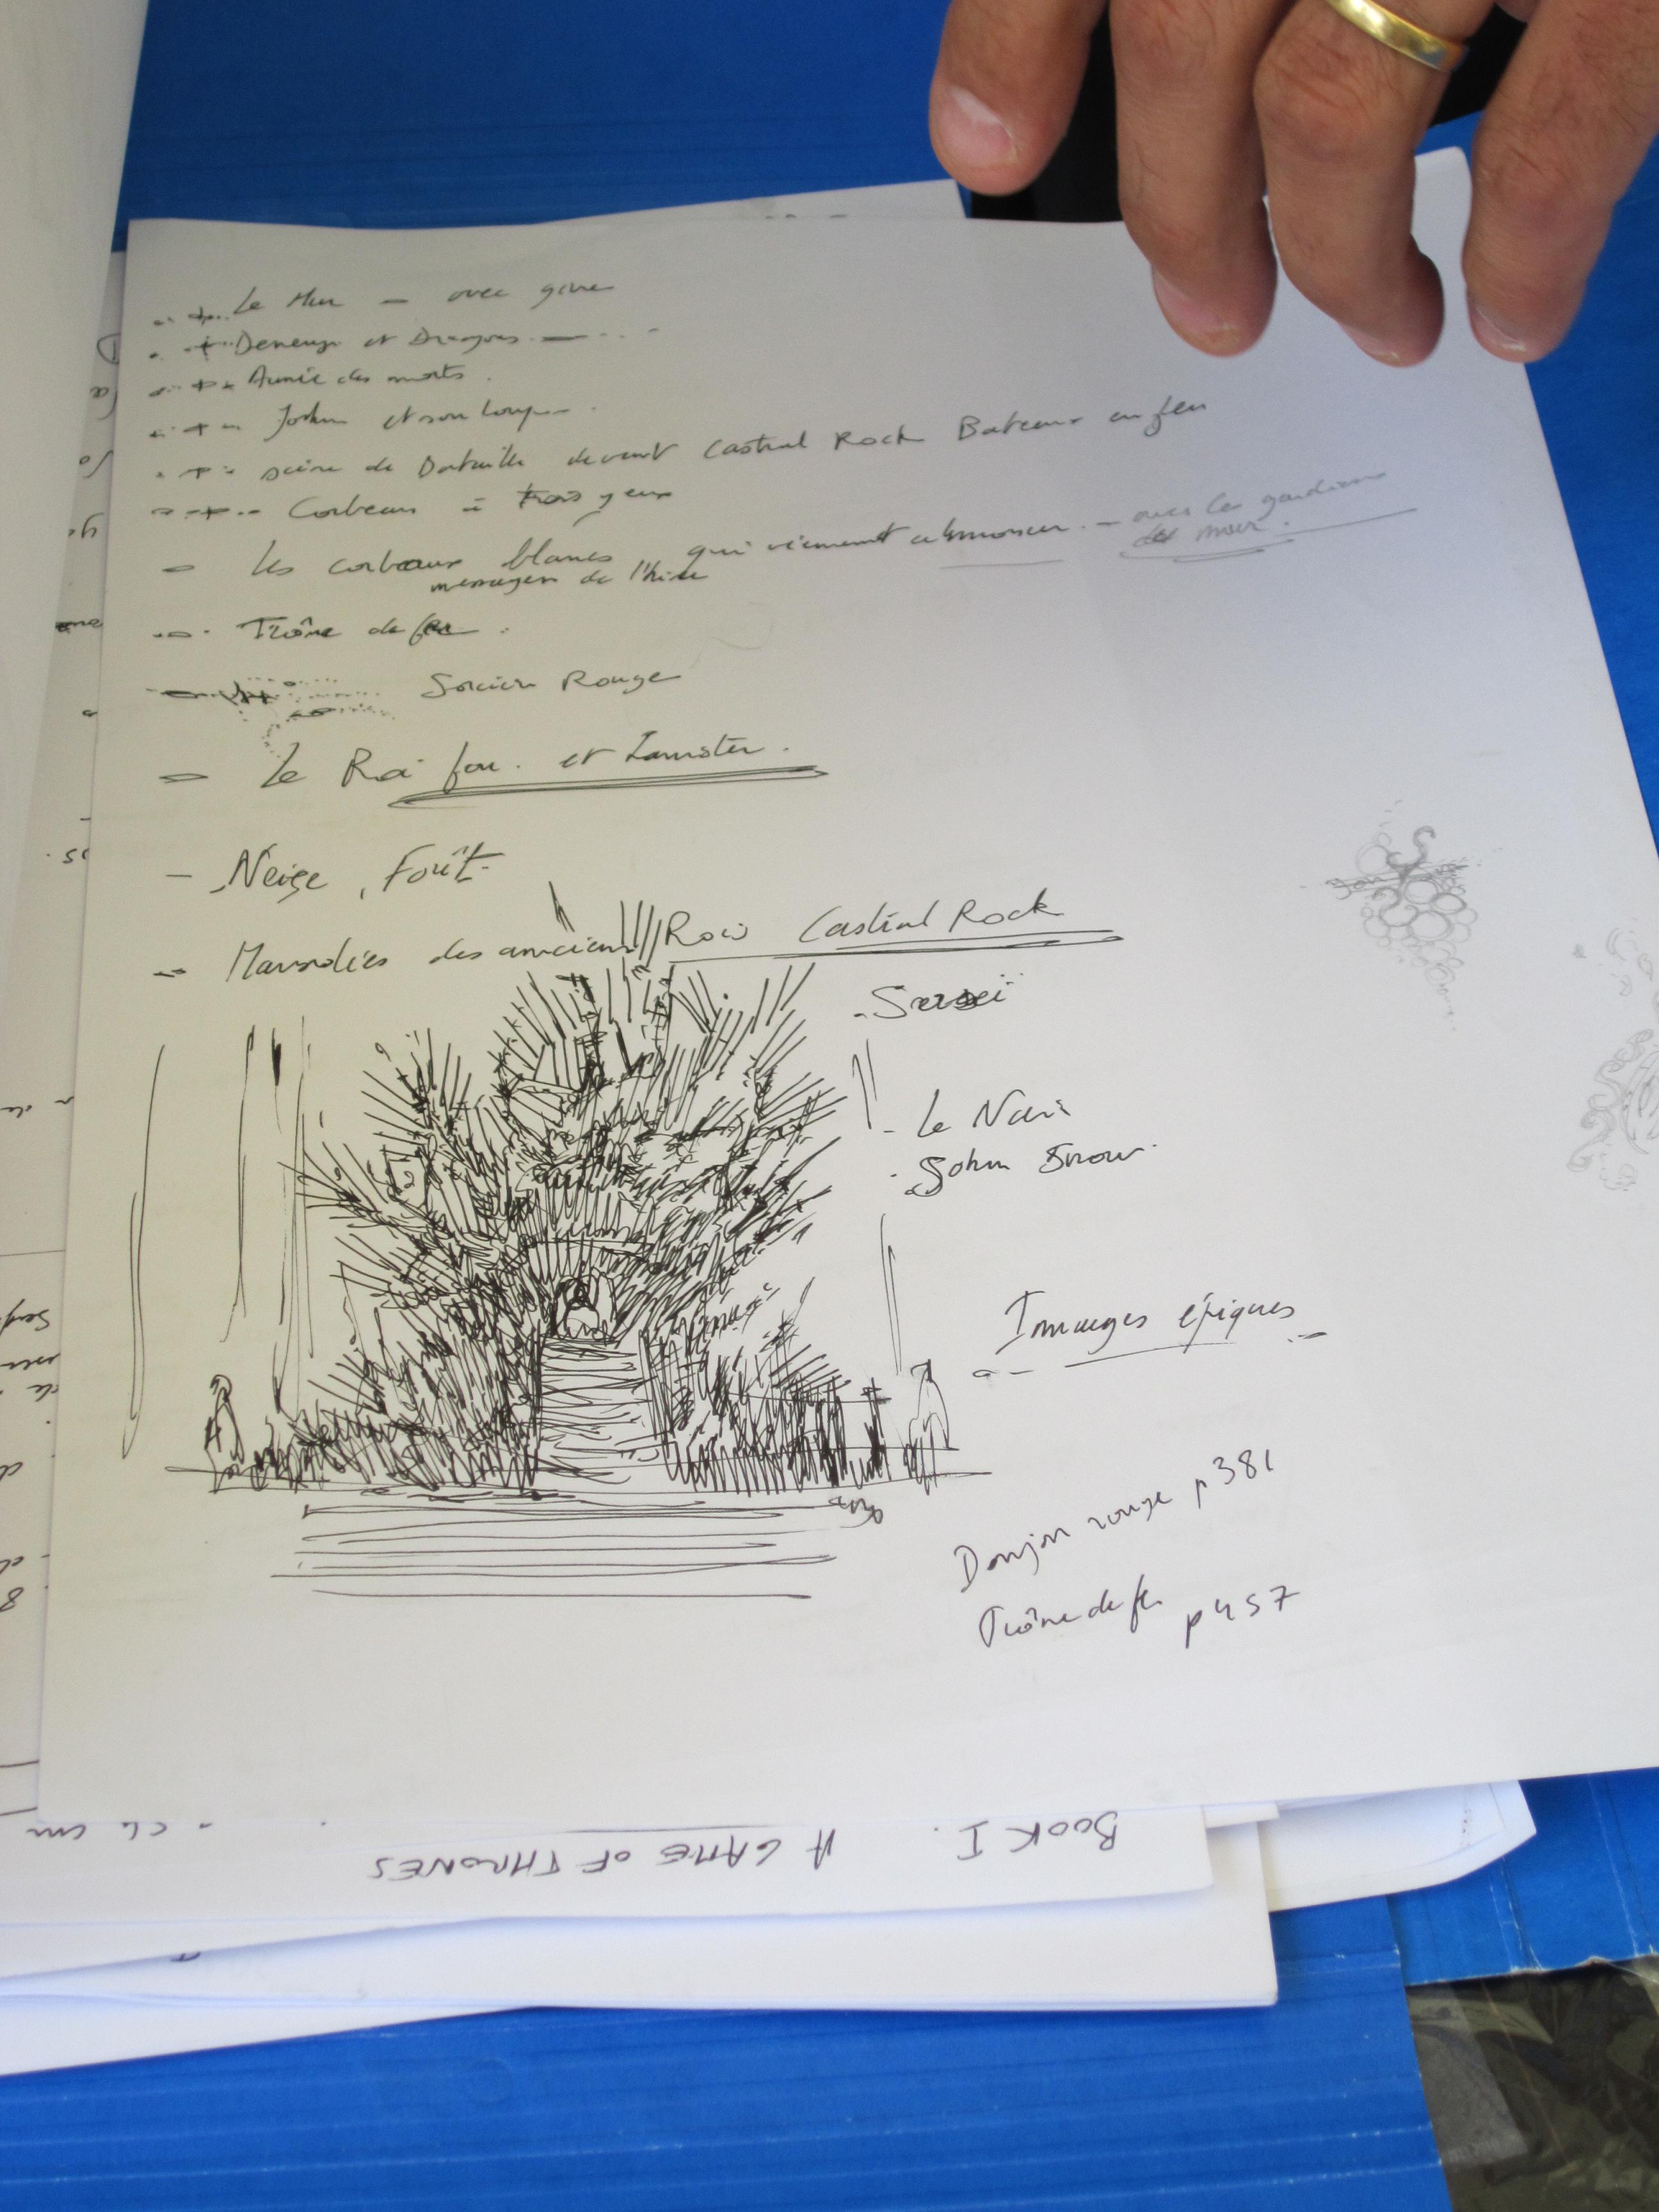 Le Mur - avec givre
Deneurys et Dragons
Armée des morts.
John et son loup
scène de Bataille devant Castral Rock Bateaux en feu
Corbeau à trois yeux
- Les corbeaux blancs, qui viennent annoncer. - avec les gardiens
messagers de l'hiver
du mur.
- Trône de fer.
Sorcier Rouge
- Le Roi fou. et Lannister.
- Neige, Forêt.
- Mausolées des anciens Rois Castral Rock
- Sersei
- Le Nain
- John Snow.
Images épiques
Donjon rouge p381
Trône de fer p457
BOOK I. A GAME OF THRONES